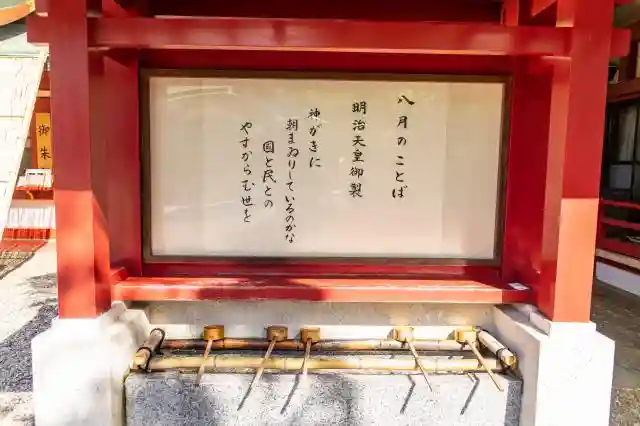 八月のことば
明治天皇御製
神がきに
朝まゐりしているのかな
国と民との
やすからむ世を
御朱